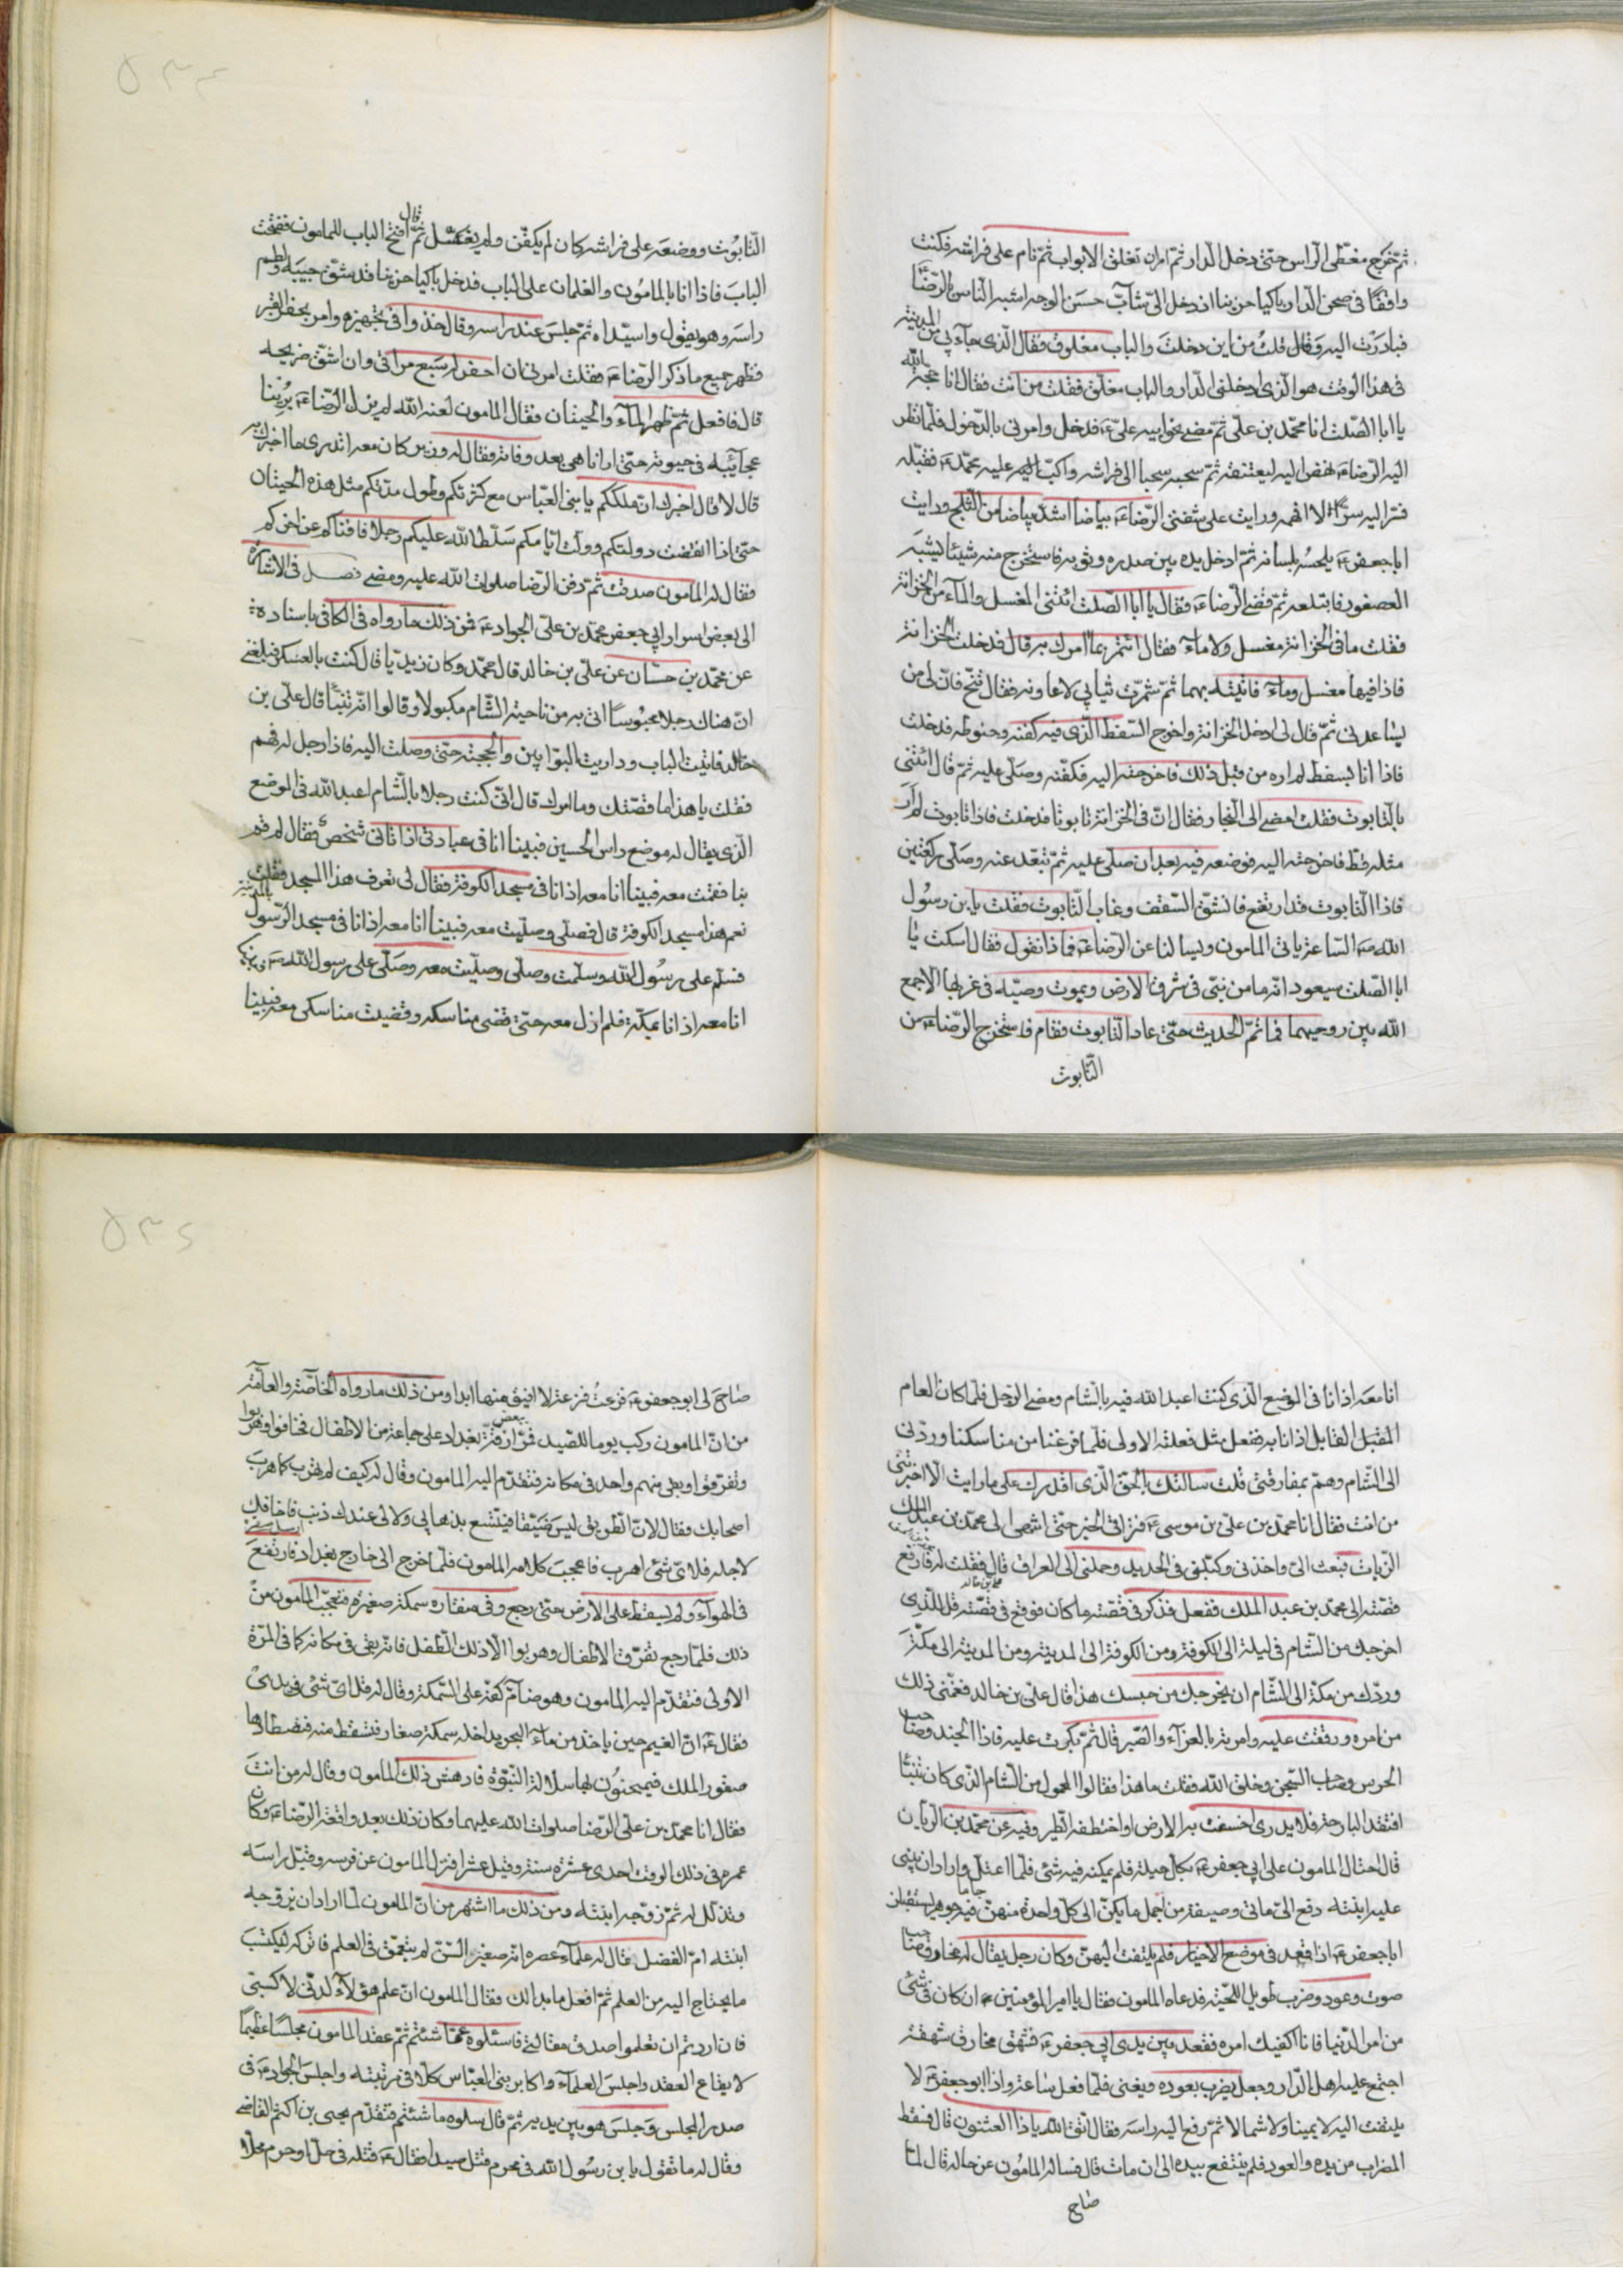 ثمّ خرج مغطّى الرّاس حتّى دخل الدّار ثمّ امر ان تغلق الابواب ثمّ نام على فراشه فكنت
واقفًا فى صحن الدّار باكيا حزينا اذ دخل الىّ شابّ حسن الوجه اشبه النّاس بالرّضاء
فبادرت اليه وقال قلت من اين دخلت والباب مغلوق فقال الّذى جاء بى من المدينة
فى هذا الوقت هو الّذى ادخلنى الدّار والباب مغلّق فقلت من انت فقال انا حجّة الله
يا ابا الصّلت انا محمّد بن علىّ ثمّ مضى نحو ابيه علىّ ع فدخل وامرنى بالدّخول فلمّا نظر
اليه الرّضاء ع نهض اليه ليعتنقه ثمّ سحبه سحبا الى فراشه واكبّ اليه عليه محمّد ع فقبّله
فسرّ اليه سرًّا لا افهمه ورايت على شفتى الرّضاء ع بياضا اشدّ بياضا من الثّلج ورايت
ابا جعفر ع يلحسه بلسانه ثمّ ادخل يده بين صدره وثوبه فاستخرج منه شيئا يشبه
العصفور فابتلعه ثمّ قضى الرّضاء ع فقال يا ابا الصّلت ائتنى المغسل والماء من الخزانة
فقلت ما فى الخزانة مغسل ولا ماء فقال ائتمر بما امرك به قال فدخلت الخزانة
فاذا فيها مغسل وماء فاتيته بهما ثمّ شمّرت ثيابى لاعاونه فقال تنحّ فانّ لى من
يساعدنى ثمّ قال لى ادخل الخزانة واخرج السّفط الّذى فيه كفنه وحنوطه فدخلت
فاذا انا بسفط لم اره من قبل ذلك فاخرجته اليه فكفّنه وصلّى عليه ثمّ قال ائتنى
بالتّابوت فقلت امضى الى النّجار فقال انّ فى الخزانة تابوتا فدخلت فاذا تابوت لم ار
مثله قطّ فاخرجته اليه فوضعه فيه بعد ان صلّى عليه ثمّ تبعّد عنه وصلّى ركعتين
فاذا التّابوت قد ارتفع فانشقّ السّقف وغاب التّابوت فقلت يابن رسول
الله ص السّاعة ياتى المامون ويسالنا عن الرّضاء ع فماذا نقول فقال اسكت يا
ابا الصّلت سيعود انّه ما من نبىّ فى شرق الارض ويموت وصيّه فى غربها الا جمع
الله بين روحيهما فما تمّ الحديث حتّى عاد التّابوت فقام فاستخرج الرّضاء ع من
التّابوت
التّابوت ووضعه على فراشه كان لم يكفّن ولم يغسّل ثمّ قال افتح الباب للمامون ففتحت
الباب فاذا انا بالمامون والغلمان على الباب فدخل باكيا حزينا قد شقّ جيبه ولطم
راسه وهو يقول واسيّداه ثمّ جلس عند راسه وقال خذوا فى تجهيزه وامر بحفر القبر
فظهر جميع ما ذكر الرّضاء ع فقلت امرنى ان احفر له سبع مراقى وان اشقّ ضريحه
قال فافعل ثمّ ظهر الماء والحيتان فقال المامون لعنه الله لم يزل الرّضاء ع يرينا
عجائبه فى حيوته حتّى ارانا هى بعد وفاته فقال له وزير كان معه اتدرى ما اخبرك به
قال لا قال اخبرك انّ ملككم يا بنى العبّاس مع كثرتكم وطول مدّتكم مثل هذه الحيتان
حتّى اذا انقضت دولتكم وولّت ايّامكم سلّط الله عليكم رجلا فافناكم عن اخركم
فقال له المامون صدقت ثمّ دفن الرّضا صلوات الله عليه ومضى فصل فى الاشارة
الى بعض اسرار ابى جعفر محمّد بن علىّ الجواد ع فمن ذلك ما رواه فى الكافى باسناده
عن محمّد بن حسّان عن علىّ بن خالد قال محمّد وكان زيديّا قال كنت بالعسكر فبلغنى
انّ هناك رجلا محبوسًا اتى به من ناحية الشّام مكبولا وقالوا انّه تنبّأ قال علىّ بن
خالد فاتيت الباب وداريت البوّابين والحجبة حتّى وصلت اليه فاذا رجل له فهم
فقلت يا هذا ما قصّتك وما امرك قال انّى كنت رجلا بالشّام اعبد الله فى الموضع
الّذى يقال له موضع راس الحسين فبينا انا فى عبادتى اذ اتانى شخص فقال لى قم
بنا فقمت معه فبينا انا معه اذ انا فى مسجد الكوفة فقال لى تعرف هذا المسجد فقلت
نعم هذا مسجد الكوفة قال فصلّى وصلّيت معه فبينا انا معه اذ انا فى مسجد الرّسول بالمدينة
فسلّم على رسول الله وسلّمت وصلّى وصلّيت معه وصلّى على رسول الله ص فبينا
انا معه اذ انا بمكّة فلم ازل معه حتّى قضى مناسكه وقضيت مناسكى معه فبينا
انا معه اذ انا فى الموضع الّذى كنت اعبد الله فيه بالشّام ومضى الرّجل فلمّا كان العام
المقبل القابل اذ انا به ففعل مثل فعلته الاولى فلمّا فرغنا من مناسكنا وردّنى
الى الشّام وهمّ بمفارقتى قلت سالتك بالحقّ الّذى اقدرك على ما رايت الّا اخبرتنى
من انت فقال انا محمّد بن علىّ بن موسى ع فتراقى الخبر حتّى انتهى الى محمّد بن عبد الملك
الزّيات فبعث الىّ واخذنى وكبّلنى فى الحديد وحملنى الى العراق قال فقلت له فارفع
قصّته الى محمّد بن عبد الملك ففعل فذكر فى قصّته ما كان فوقع فى قصّته قل للّذى
اخرجك من الشّام فى ليلة الى الكوفة ومن الكوفة الى المدينة ومن المدينة الى مكّة
وردّك من مكّة الى الشّام ان يخرجك من حبسك هذا قال علىّ بن خالد فغمّنى ذلك
من امره ورققت عليه وامرته بالعزاء والصّبر قال ثمّ بكرت عليه فاذا الجند وصاحب
الحرس وصاحب السّجن وخلق الله فقلت ما هذا فقالوا المحمول من الشّام الّذى كان تنبّأ
افتقد البارحة فلا يدرى اخسفت به الارض او اختطفه الطّير وفيه عن محمّد بن الرّيان
قال احتال المامون على ابى جعفر ع بكلّ حيلة فلم يمكنه فيه شئ فلمّا اعتلّ واراد ان يبنى
عليه ابنته دفع الىّ مأتى وصيفة من اجمل ما يكنّ الى كلّ واحدة منهنّ جاما فيه جوهر يستقبلن
ابا جعفر ع اذا قعد فى موضع الاخيار فلم يلتفت اليهنّ وكان رجل يقال له مخارق صاحب
صوت وعود وضرب طويل اللّحية فدعاه المامون فقال يا امير المؤمنين ان كان فى شئ
من امر الدّنيا فانا اكفيك امره فقعد بين يدى ابى جعفر ع فشهق مخارق شهقة
اجتمع عليه اهل الدّار وجعل يضرب بعوده ويغنى فلمّا فعل ساعة واذا ابو جعفر ع لا
يلتفت اليه لا يمينا ولا شمالا ثمّ رفع اليه راسه فقال اتّق الله ياذا العثنون قال فسقط
المضراب من يده والعود فلم ينتفع بيده الى ان مات قال فساله المامون عن حاله قال لمّا
صاح
صاح لى ابو جعفر ع فزعت فزعة لا افيق منها ابدا ومن ذلك ما رواه الخاصّة والعامّة
من انّ المامون ركب يوما للصّيد فمرّ ببعض ازقّة بغداد على جماعة من الاطفال فخافوا وهربوا
وتفرّقوا وبقى منهم واحد فى مكانه فتقدّم اليه المامون وقال له كيف لم تهرب كما هرب
اصحابك فقال لانّ الطّريق ليس ضيّقا فيتّسع بذهابى ولا لى عندك ذنب فاخافك
لاجله فلاىّ شئ اهرب فاعجب كلامه المامون فلمّا خرج الى خارج بغداد فارتفع
فى الهواء ولم يسقط على الارض حتّى رجع وفى منقاره سمكة صغيرة فتعجّب المامون من
ذلك فلمّا رجع تفرّق الاطفال وهربوا الّا ذلك الطّفل فانّه بقى فى مكانه كما فى المرّة
الاولى فتقدّم اليه المامون وهو ضامّ كفّه على السّمكة وقال له قل اىّ شئ فى يدى
فقال ع انّ الغيم حين ياخذ من ماء البحر يداخله سمكة صغار فتسقط منه فتصطادها
صقور الملك فيمتحنون بها سلالة النّبوّة فادهش ذلك المامون وقال له من انت
فقال انا محمّد بن علىّ الرّضا صلوات الله عليهما وكان ذلك بعد واقعة الرّضاء ع وكان
عمره فى ذلك الوقت احدى عشرة سنة وقيل عشرا فنزل المامون عن فرسه وقبّل راسه
وتذلّل له ثمّ زوّجه ابنته ومن ذلك ما اشتهر من انّ المامون لمّا اراد ان يزوّجه
ابنته امّ الفضل قال له علماء عصره انّه صغير السّنّ لم يتعمّق فى العلم فاتركه ليكتسب
ما يحتاج اليه من العلم ثمّ افعل ما بدا لك فقال المامون انّ علم هؤلاء لدنّى لا كسبى
فان اردتم ان تعلموا صدق مقالتى فاسئلوه عمّا شئتم ثمّ عقد المامون مجلسا عظيما
لايقاع العقد واجلس العلماء واكابر بنى العبّاس كلّا فى مرتبته واجلس الجواد ع فى
صدر المجلس وجلس هو بين يديه ثمّ قال سلوه ما شئتم فتقدّم يحيى بن اكثم القاضى
وقال له ما تقول يابن رسول الله فى محرم قتل صيدا فقال ع قتله فى حلّ او حرم محلّا